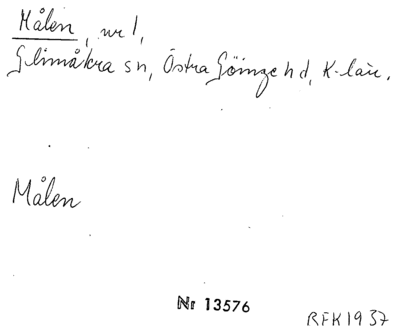 Målen, nr 1,
Glimåkra sn, Östra Göinge hd, K-län.
Målen
Nr 13576
RFK1937